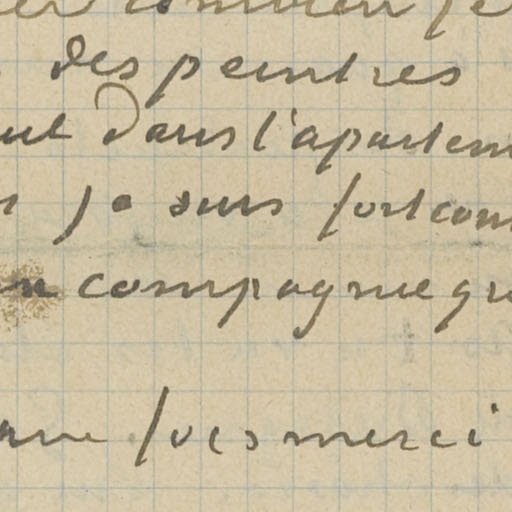 combien je
des peintres
dans l'apartem
je suis fort con
compagnie qu
fois merci